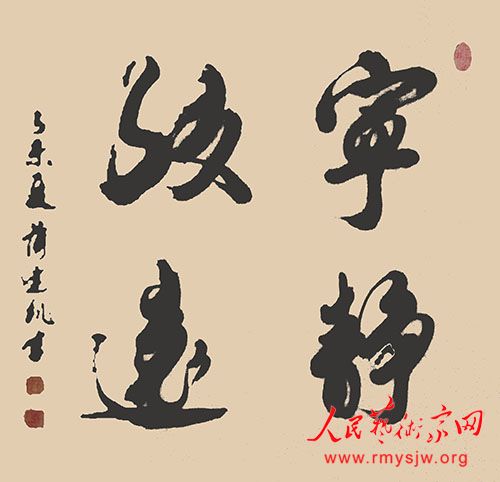 寧靜
致遠
乙未夏
人民艺术家网
www.rmysjw.org